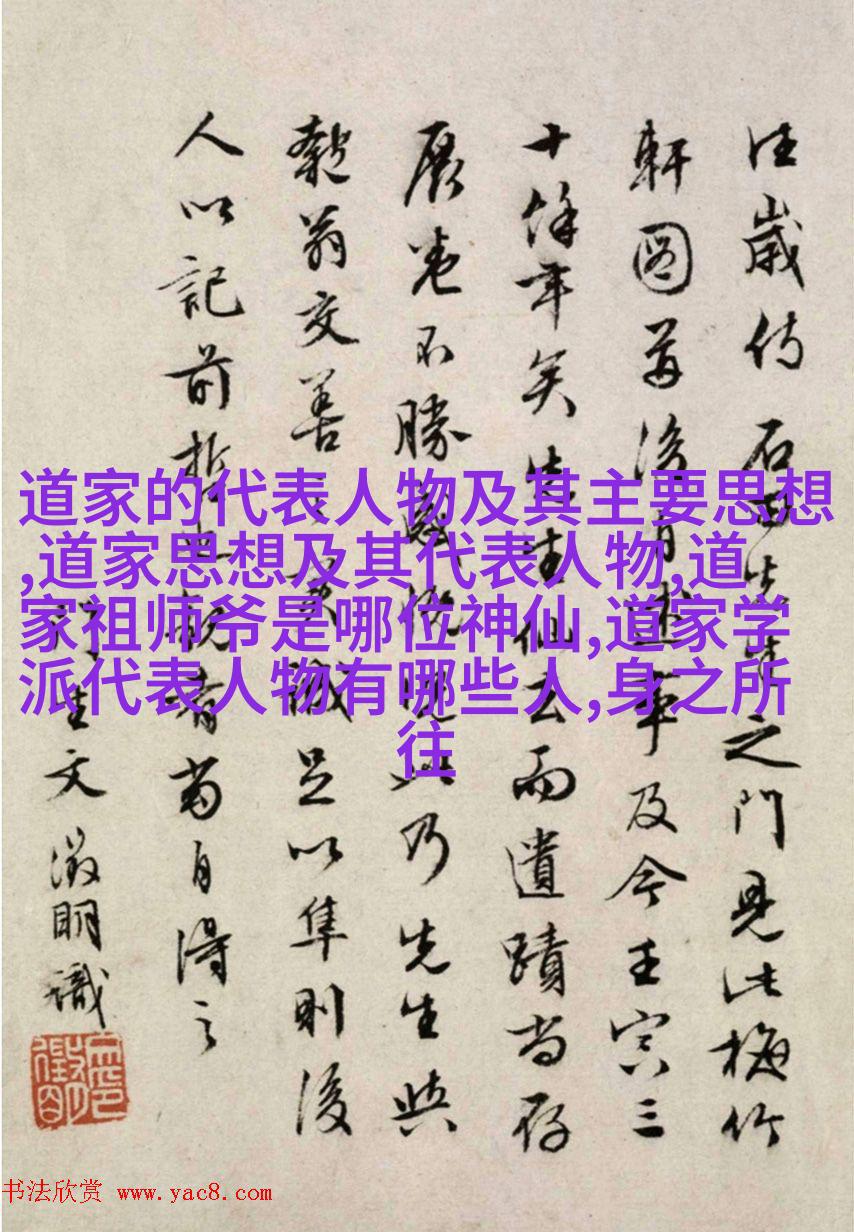 往歲侍 石田先生之門見此梅竹
軒圖後有述事及今壬寅三
十餘年矣先生仙去而遺蹟尚存
展卷不勝感慨此乃先生與
匏翁交善足以隼則後
人以記前哲也觀者當自得之
生文徵明識
道家的代表人物及其主要思想
,道家思想及其代表人物,道
家祖师爷是哪位神仙,道家学
派代表人物有哪些人,身之所
往
书法欣赏 www.yac8.com